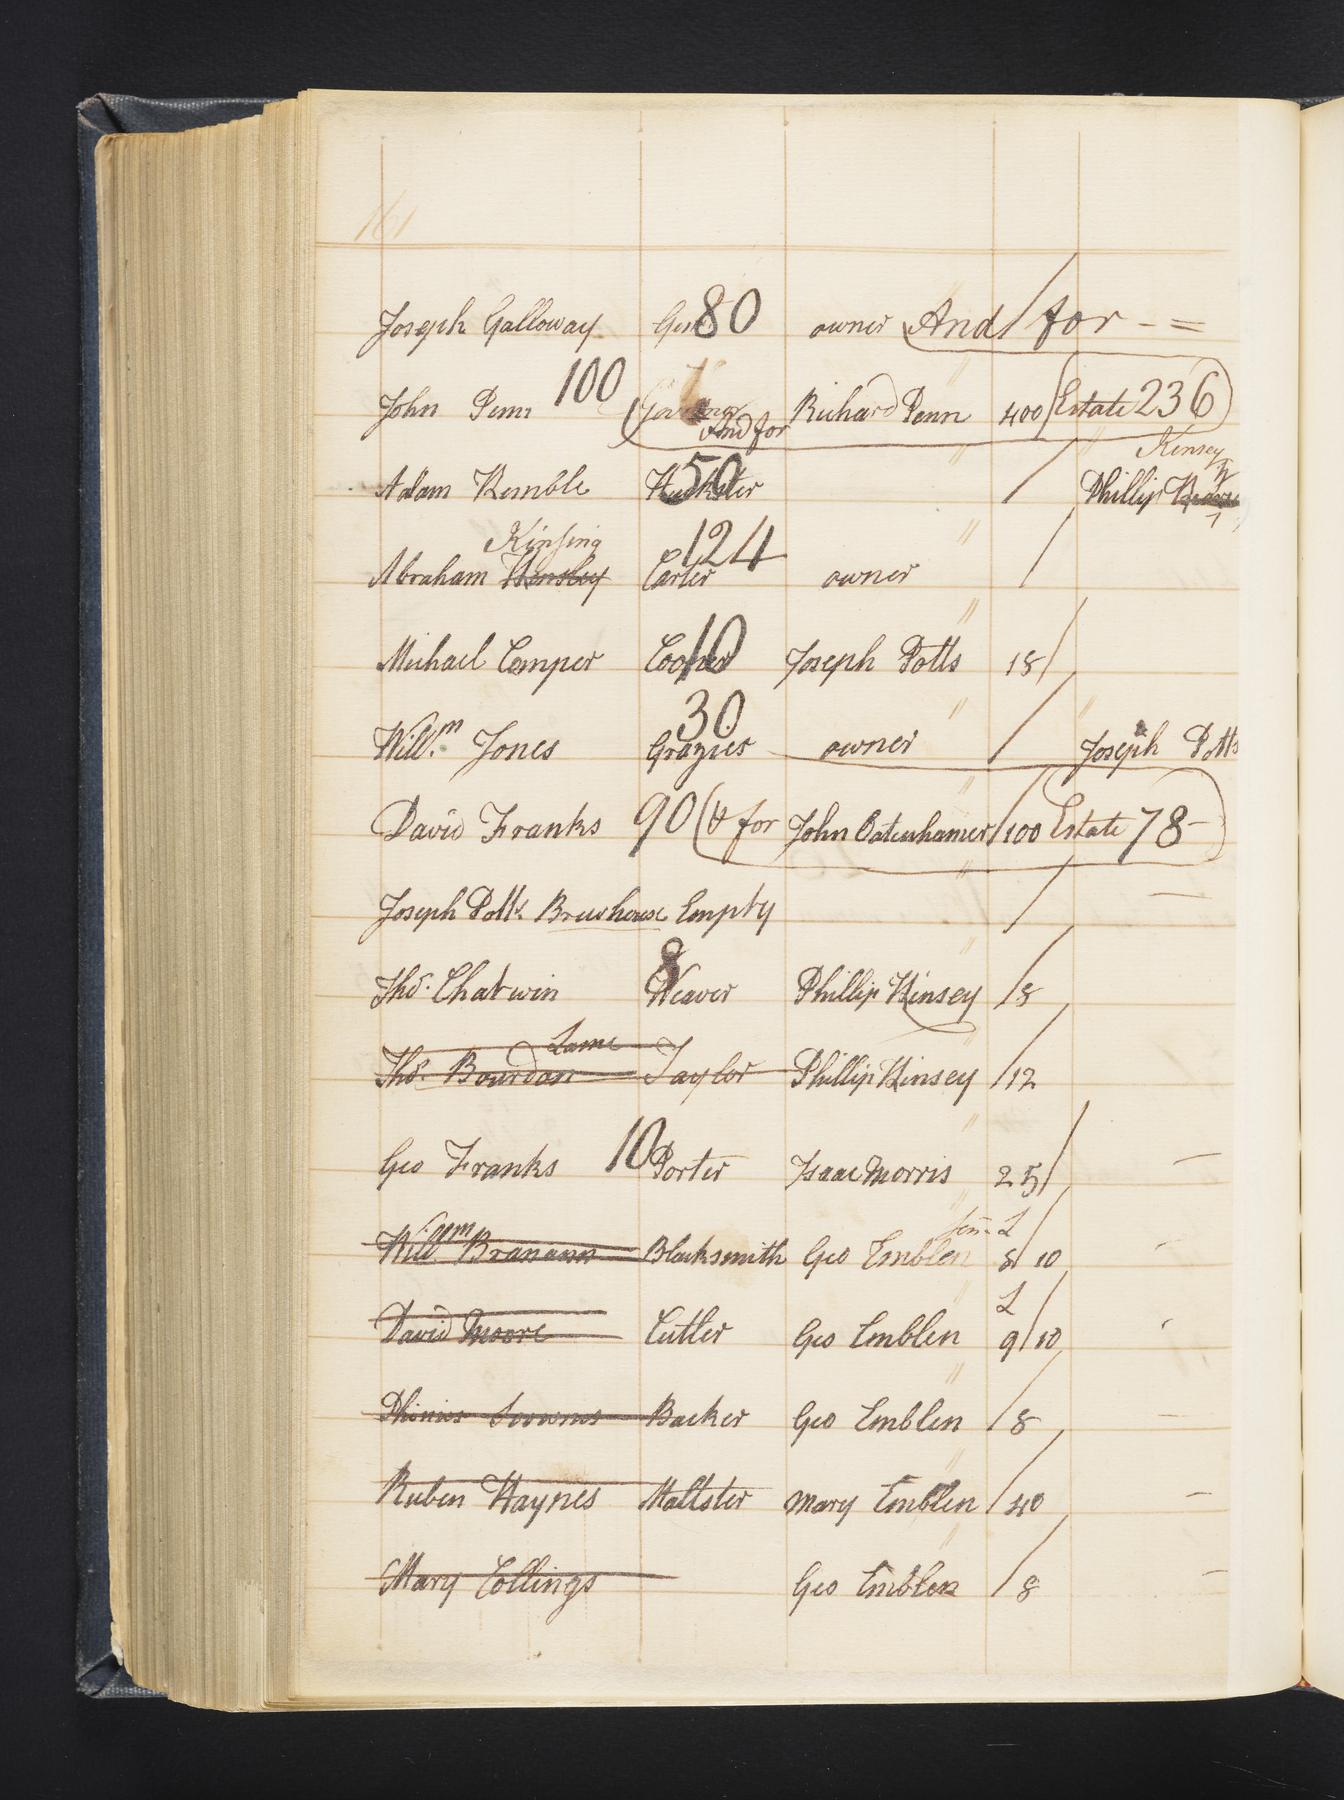 161
Joseph Galloway Gen 80 owner And / for - =
John Penn 100 (Governor And for Richard Penn 400 / Estate 236
Kinsey
Adam Kemble Huckster 50 / Phillip
Kinsing
Abraham Hensley Carter 124 owner /
Michael Comper Cooper 10 Joseph Potts 18 /
Will.m Jones Grazier 30 owner / Joseph Potts
David Franks 90 (& for John Oatenhamer / 100 Estate 78 -
Joseph Potts Brewhouse Empty /
Tho.s Chatwin Weaver 8 Phillip Kinsey / 8
Lame
Tho.s Bourdon Taylor Phillip Kinsey / 12
Geo Franks 10 Porter Isaac Morris 25 /
Sen.r L
Will.m Branann Blacksmith Geo Emblen 8 / 10
L
David Moore Cutler Geo Emblen 9 / 10
Backer Geo Emblen / 8
Ruben Haynes Maltster Mary Emblen / 40
Mary Collings Geo Emblen / 8